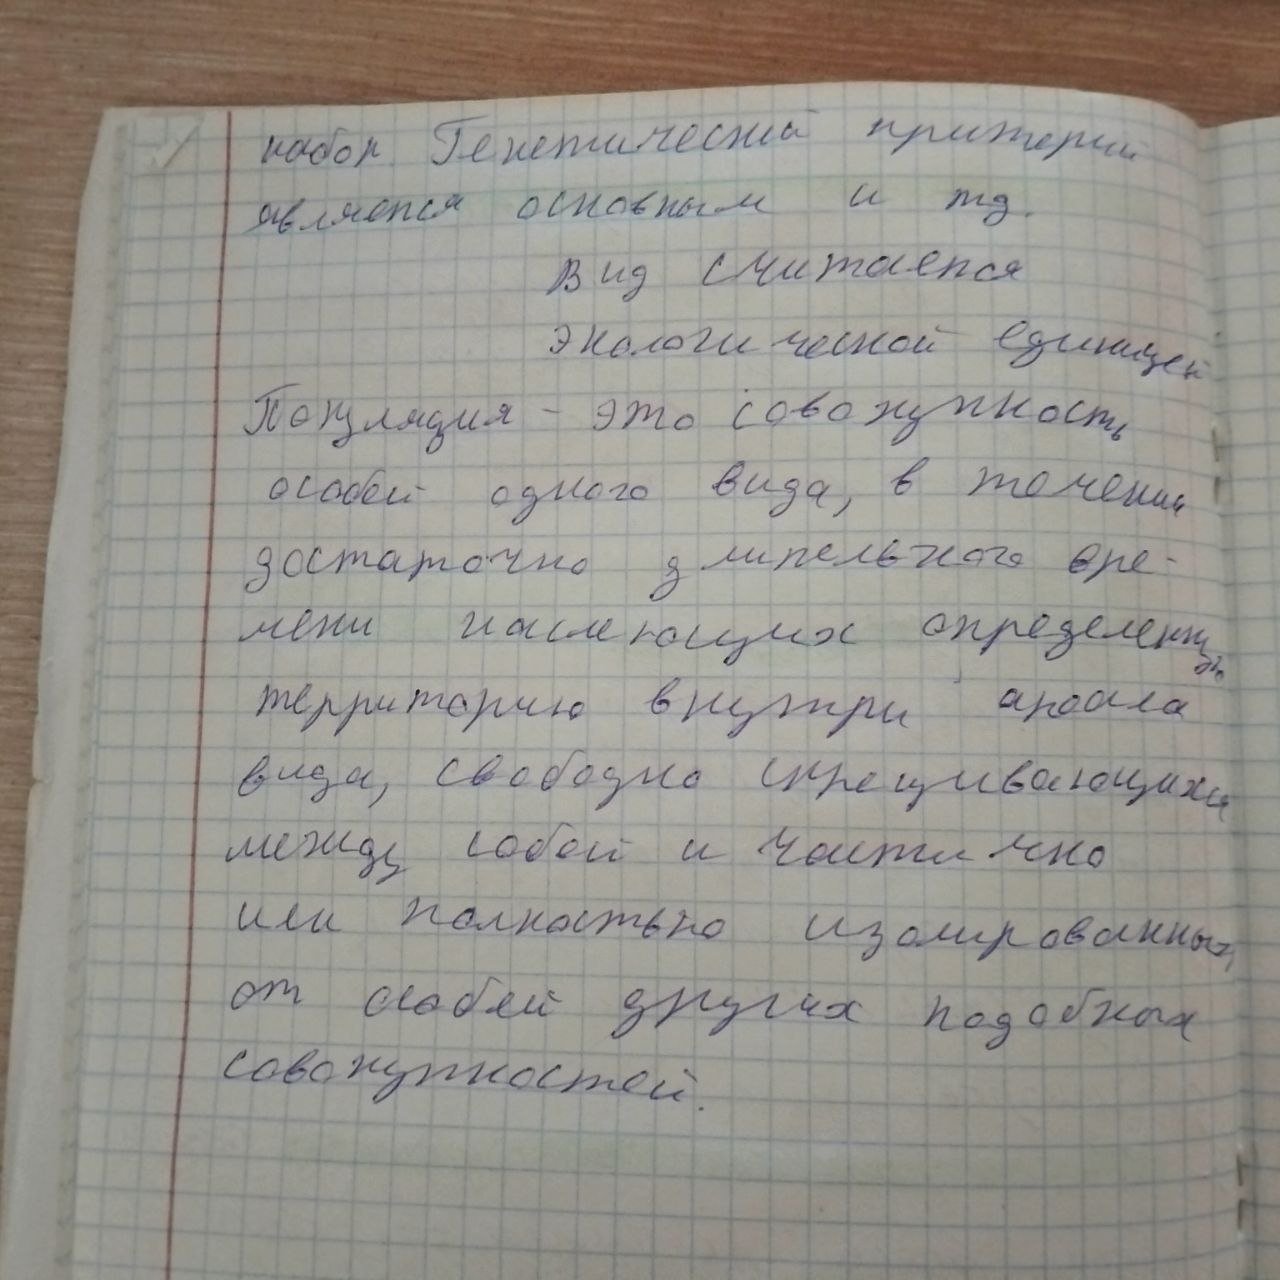 набор Генетический критерий
является основным и тд.
Вид считается
экологической единицей
Популяция - это совокупность
особей одного вида, в течении
достаточно длительного вре-
мени населяющих определенную
территорию внутри ареала
вида, свободно скрещивающихся
между собой и частично
или полностью изолированных
от особей других подобных
совокупностей.